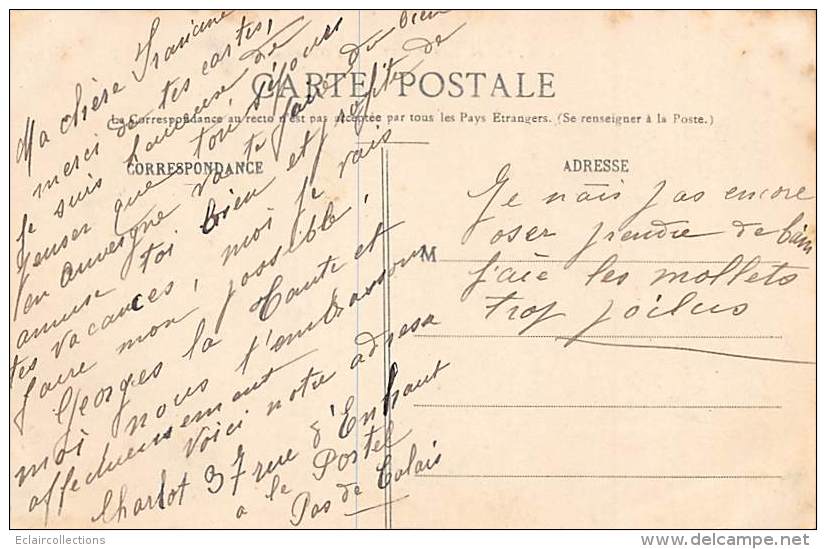 CARTE POSTALE
La Correspondance au recto n'est pas acceptée par tous les Pays Etrangers. (Se renseigner à la Poste.)
CORRESPONDANCE
ADRESSE
M
Ma chère
merci de tes cartes,
Je suis heureuse de
penser que ton séjour
en Auvergne va te faire du bien
amuse toi bien et profite de
tes vacances, moi je vais
faire mon possible,
Georges la Tante et
moi nous t'embrassons
affectueusement
Voici notre adresse
Charlot 37 rue d'Enhaut
a le Portel
Pas de Calais
Je nais pas encore
oser prendre de bain
j'aie les mollets
trop poilus
Eclaircollections
www.delcampe.net